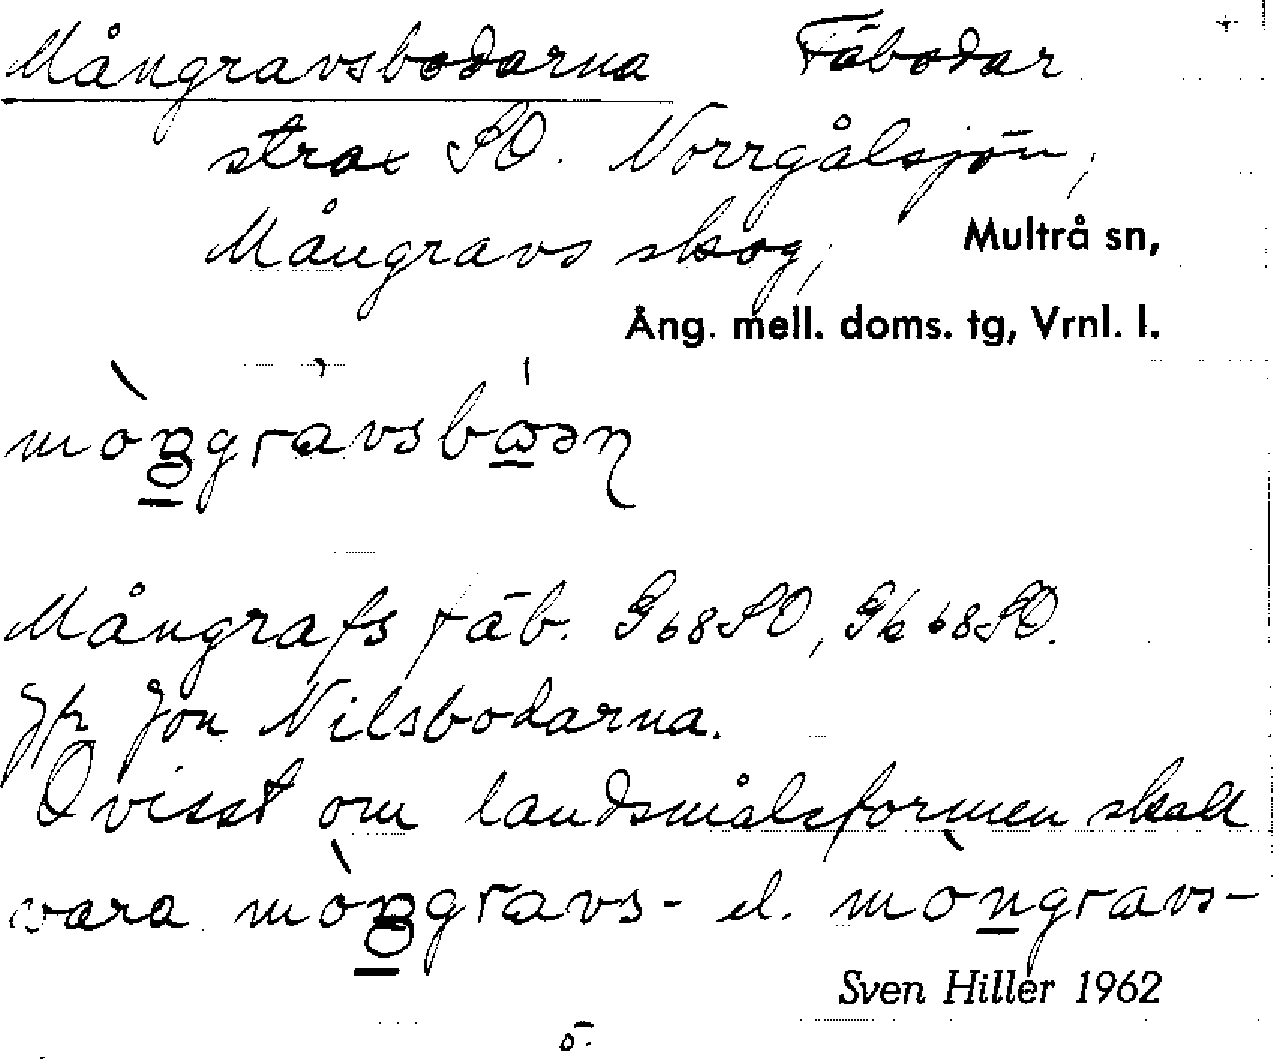 Mångravsbodarna Fäbodar
strax SO. Norrgålsjön,
Mångravs skog, Multrå sn,
Ång. mell. doms. tg, Vrnl. l.
mòŋgràvsbωən
Mångrafs fäb. G68SO, Gk68SO.
Jfr Jon Nilsbodarna.
Ovisst om landsmålsformen skall
vara mòŋgravs- el. mòngravs-
Sven Hillér 1962